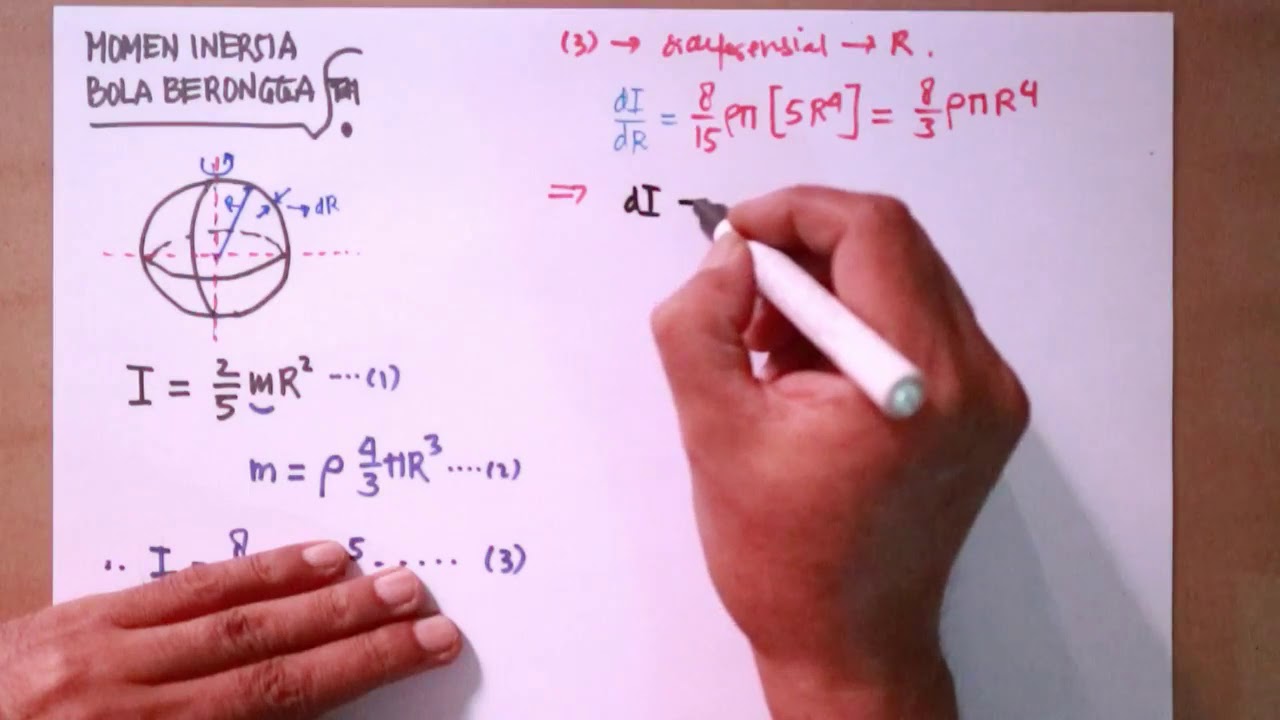 MOMEN INERSIA
BOLA BERONGGA
R
dR
I = 2/5 mR² ....(1)
m = ρ 4/3 πR³ ....(2)
∴ I = 8 5 ...... (3)
(3) → → R.
dI/dR = 8/15 ρπ [5R⁴] = 8/3 ρπR⁴
⇒ dI